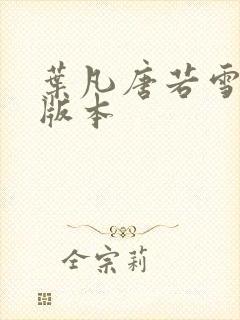 葉凡唐若雪
版本
全宗莉